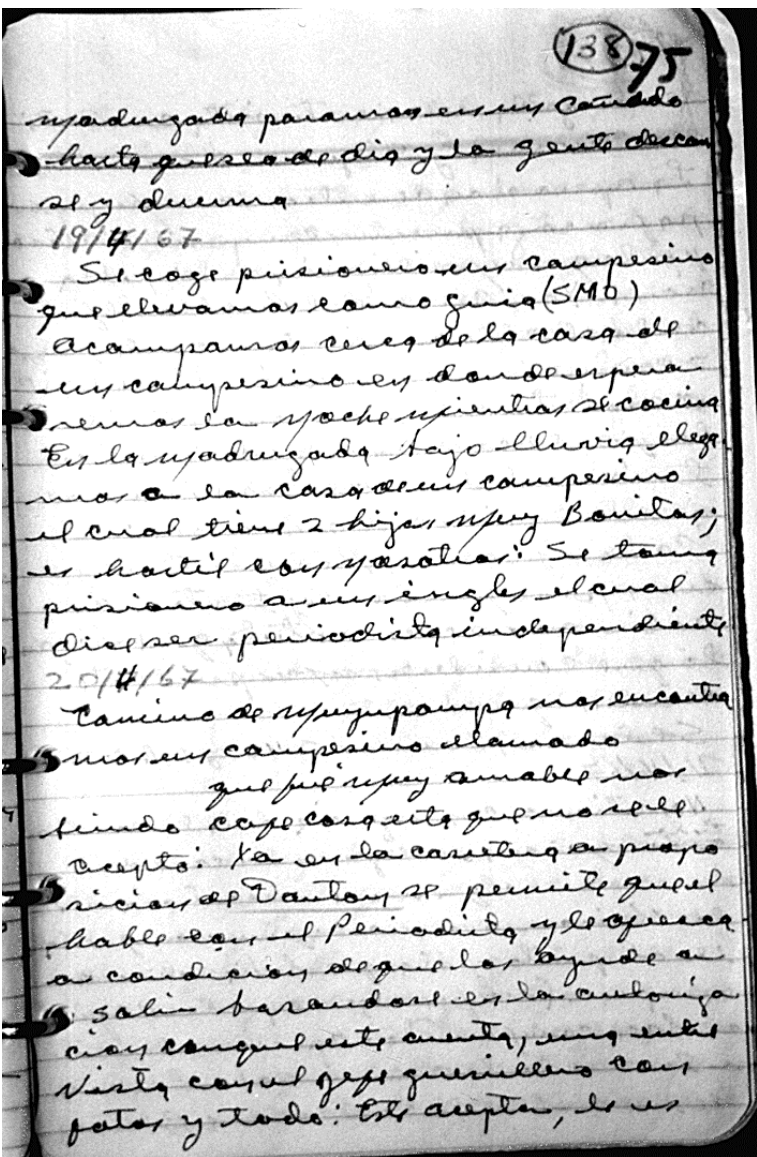 138 75
madrugada paramos en un cañado
hasta que sea de dia y la gente descan
se y duerma
19/4/67
Se coge prisionero un campesino
que llevamos como guia (SMO)
Acampamos cerca de la casa de
un campesino en donde espera
remos la noche mientras se cocina
En la madrugada bajo lluvia llega
mos a la casa de un campesino
el cual tiene 2 hijas muy Bonitas;
es hostil con nosotros: Se toma
prisionero a un ingles el cual
dice ser periodista independiente
20/4/67
Camino de Muyupampa nos encontra
mos un campesino llamado
que fué muy amable nos
brindo cafe cosa esta que no se le
acepto: Ya en la carretera a propo
sicion de Danton se permite que el
hable con el Periodista y le ofresca
a condicion de que los ayude a
salir basandose en la autoriza
cion conque este cuenta, una entre
vista con el jefe guerrillero con
fotos y todo: Este acepta, le es